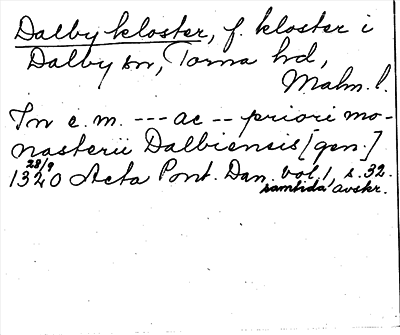 Dalby kloster, f. kloster i
Dalby sn, Torna hd,
Malm. l.
In e.m. --- ac -- priori mo-
nasterii Dalbiensis [gen.]
28/9
1320 Acta Pont. Dan. vol. 1, s. 32.
samtida avskr.